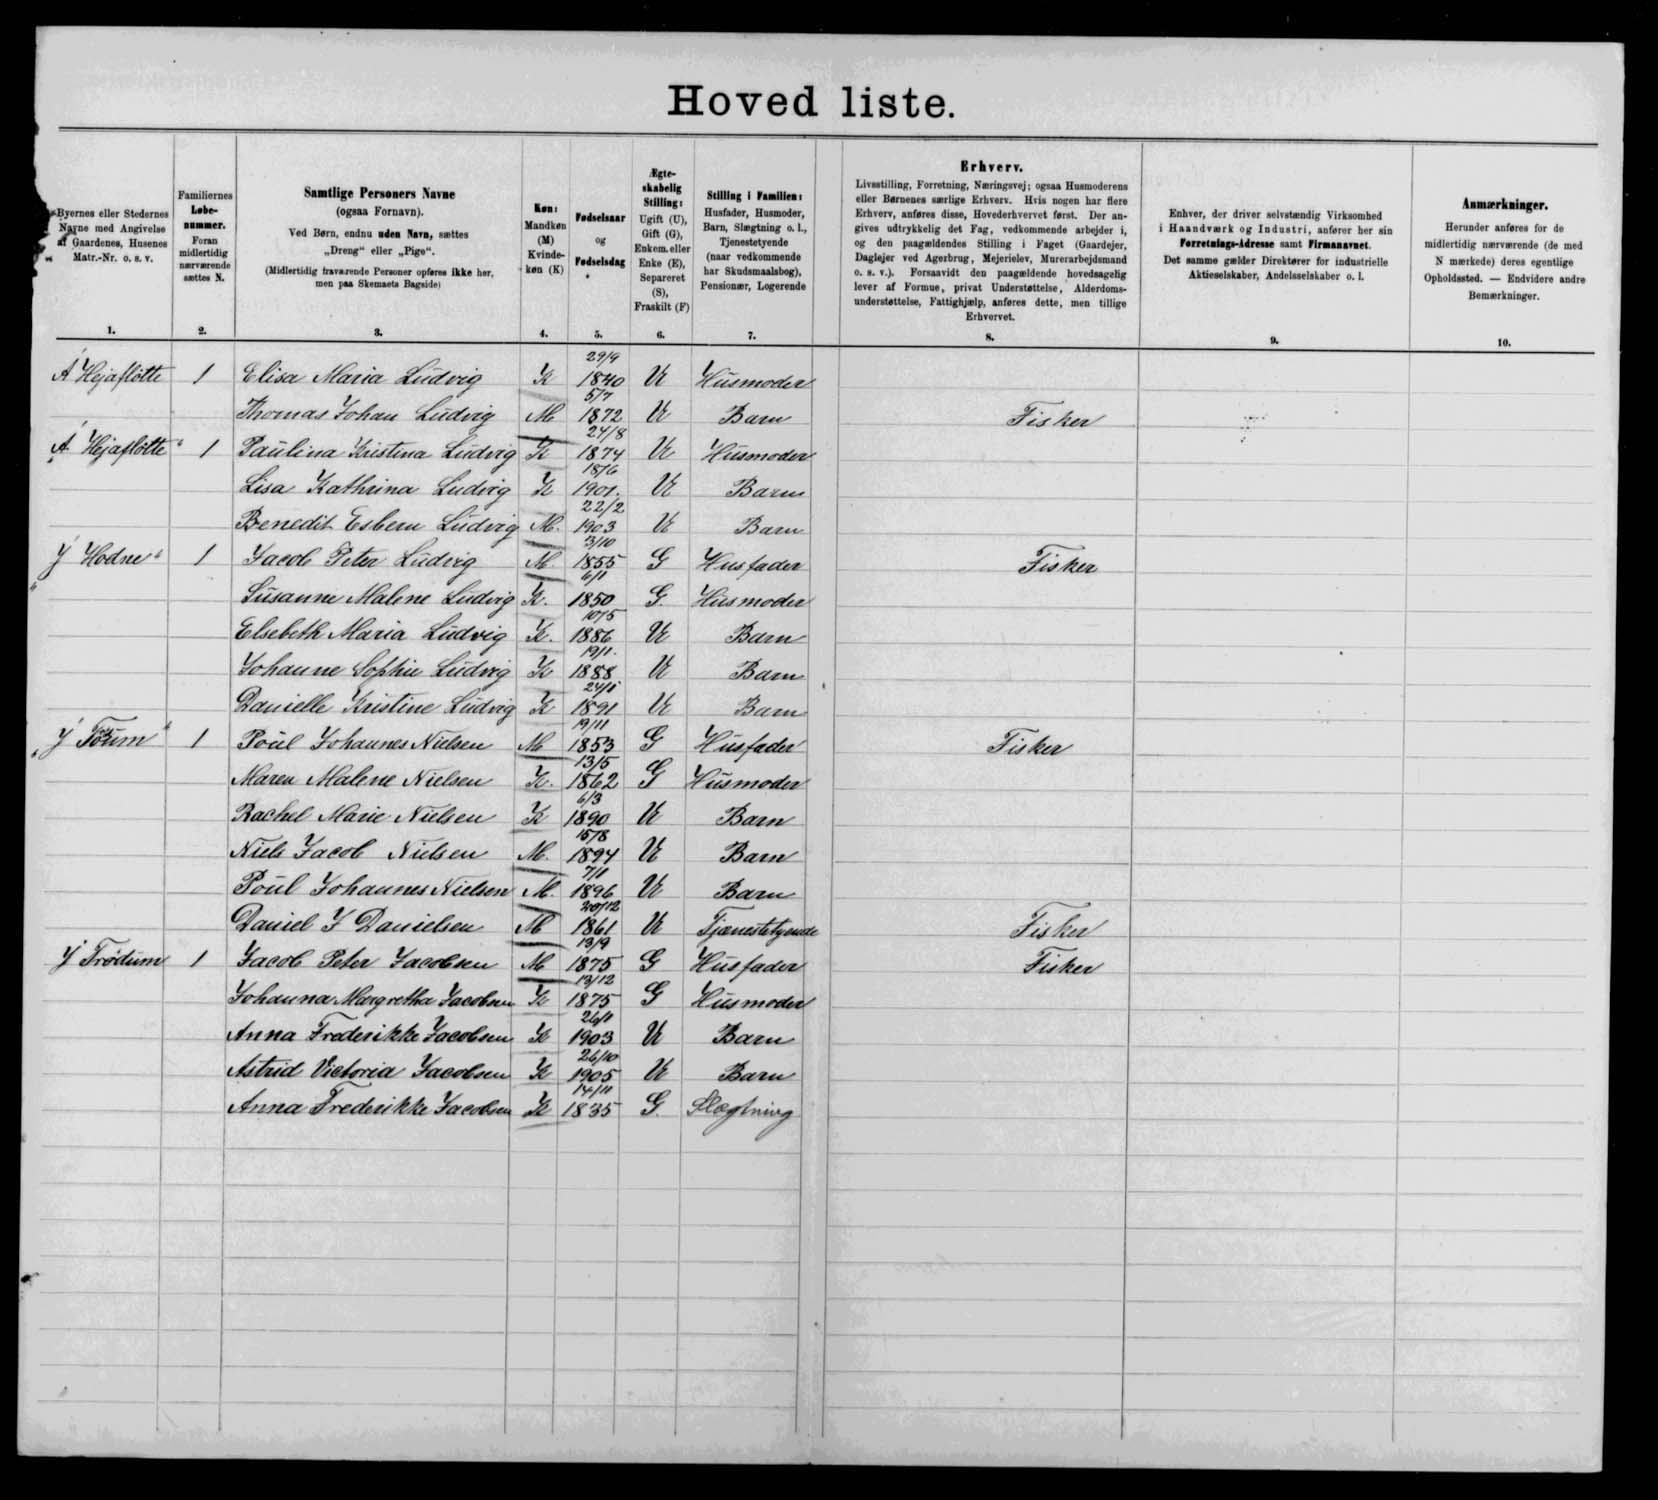 Hoved liste.
Byernes eller Stedernes Navne med Angivelse af Gaardenes, Husenes Matr.-Nr. o. s. v.
Familiernes Løbenummer. Foran midlertidig nærværende sættes N.
Samtlige Personers Navne
(ogsaa Fornavn).
Ved Børn, endnu uden Navn, sættes
„Dreng“ eller „Pige“.
(Midlertidig fraværende Personer opføres ikke her,
men paa Skemaets Bagside)
Køn:
Mandkøn
(M)
Kvinde-
køn (K)
Fødselsaar
og
Fødselsdag
Ægte-
skabelig
Stilling:
Ugift (U),
Gift (G),
Enkem. eller
Enke (E),
Separeret
(S),
Fraskilt (F)
Stilling i Familien:
Husfader, Husmoder,
Barn, Slægtning o. l.,
Tjenestetyende
(naar vedkommende
har Skudsmaalsbog),
Pensionær, Logerende
Erhverv.
Livsstilling, Forretning, Næringsvej; ogsaa Husmoderens
eller Børnenes særlige Erhverv. Hvis nogen har flere
Erhverv, anføres disse, Hovederhvervet først. Der an-
gives udtrykkelig det Fag, vedkommende arbejder i,
og den paagældendes Stilling i Faget (Gaardejer,
Daglejer ved Agerbrug, Mejerielev, Murerarbejdsmand
o. s. v.). Forsaavidt den paagældende hovedsagelig
lever af Formue, privat Understøttelse, Alderdoms-
understøttelse, Fattighjælp, anføres dette, men tillige
Erhvervet.
Enhver, der driver selvstændig Virksomhed
i Haandværk og Industri, anfører her sin
Forretnings-Adresse samt Firmanavnet.
Det samme gælder Direktører for industrielle
Aktieselskaber, Andelsselskaber o. l.
Anmærkninger.
Herunder anføres for de
midlertidig nærværende (de med
N mærkede) deres egentlige
Opholdssted. — Endvidere andre
Bemærkninger.
1. 2. 3. 4. 5. 6. 7. 8. 9. 10.
Á Hejafløtte 1 Elisa Maria Ludvig K 29/9 1840 U Husmoder
Thomas Johan Ludvig M 5/7 1872 U Barn Fisker
Á Hejafløtte 1 Paulina Kristina Ludvig K 24/8 1874 U Husmoder
Lisa Kathrina Ludvig K 18/6 1901. U Barn
Benedit Esbern Ludvig M. 22/2 1903 U Barn
Í Hodne 1 Jacob Peter Ludvig M 3/10 1855 G Husfader Fisker
Susanne Malene Ludvig K. 6/1 1850 G. Husmoder
Elsebeth Maria Ludvig K. 10/5 1886 U Barn
Johanne Sophie Ludvig K 19/1. 1888 U Barn
Danielle Kristine Ludvig K 1891 U Barn
1 Poul Johannes Nielsen M 19/11 1853 G Husfader Fisker
Maren Malene Nielsen K. 13/5 1862 G Husmoder
Rachel Marie Nielsen K 6/3 1890 U Barn
Niels Jacob Nielsen M. 15/8 1894 U Barn
Poul Johannes Nielsen M. 7/1 1896 U Barn
Daniel J Danielsen M 20/12 1861 U Tjænestetyende Fisker
Í Trødum 1 Jacob Peter Jacobsen M 13/9 1875 G Husfader Fisker
Johanna Margretha Jacobsen K 13/12 1875 G Husmoder
Anna Frederikke Jacobsen K 26/1 1903 U Barn
Astrid Victoria Jacobsen K 26/10 1905 U Barn
Anna Frederikke Jacobsen K 14/11 1835 G. Slægtning